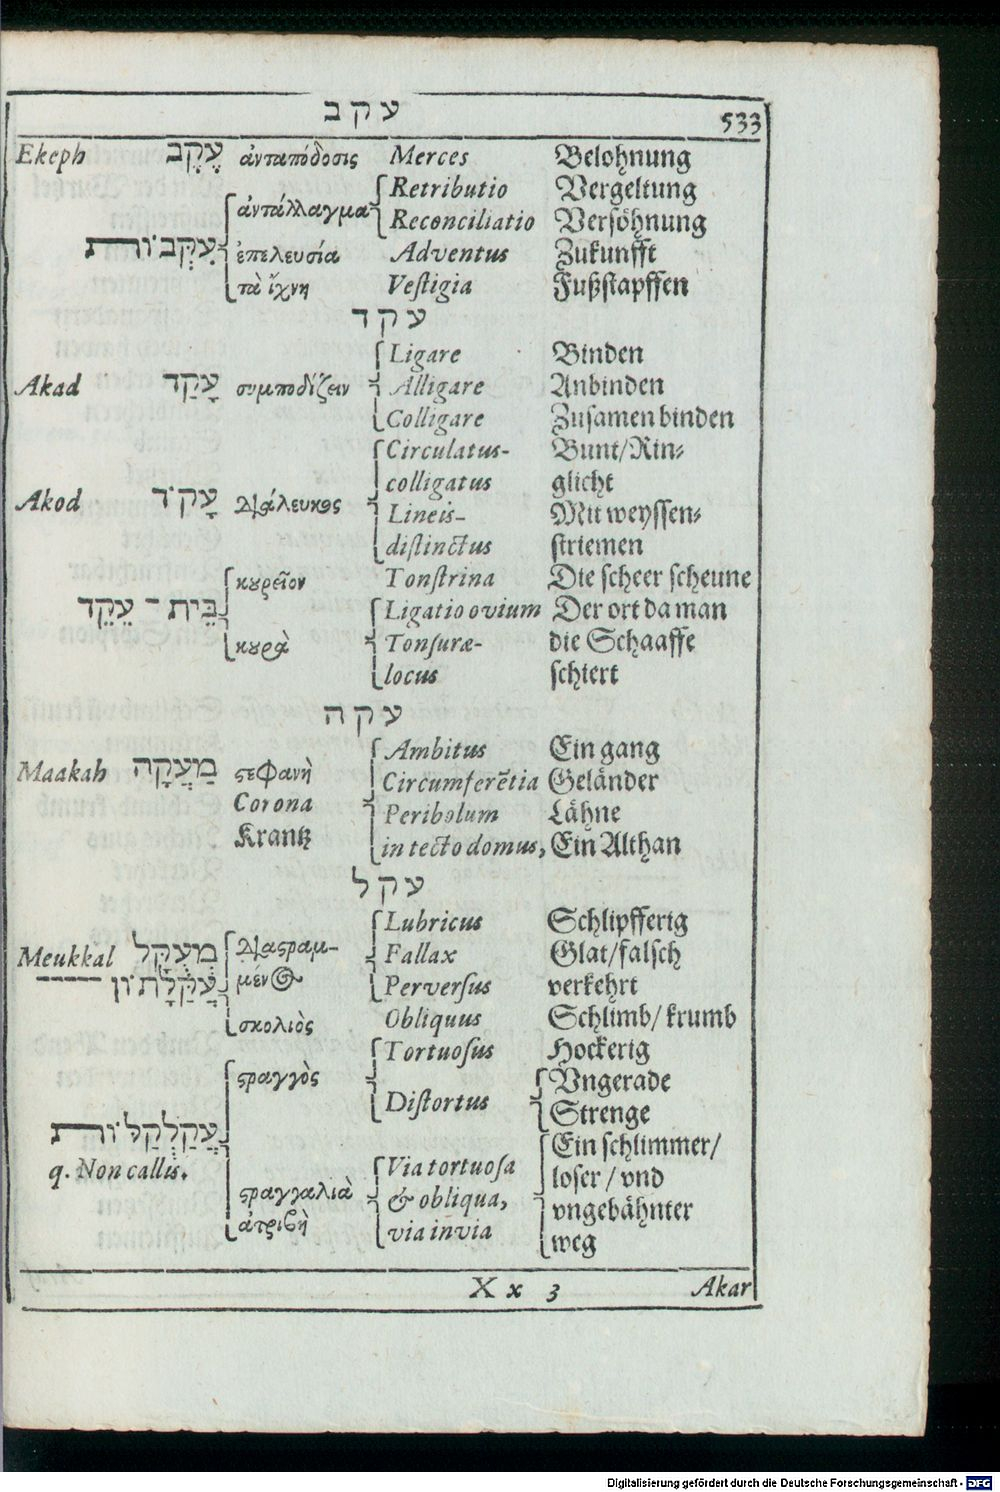 עקב
533
Ekeph עֵקֶב ἀνταπόδοσις Merces Belohnung
Retributio Vergeltung
ἀντάλλαγμα Reconciliatio Versöhnung
עִקְּבוֹת ἐπελευσία Adventus Zukunfft
τὰ ἴχνη Vestigia Fußstapffen
עקד
Ligare Binden
Akad עָקַד συμποδίζειν Alligare Anbinden
Colligare Zusamen binden
Circulatus- Bunt/Rin-
colligatus glicht
Akod עָקֹד διάλευκος Lineis- Mit weyssen-
distinctus striemen
κουρεῖον Tonstrina Die scheer scheune
בֵּית־עֵקֶד Ligatio ovium Der ort da man
κουρὰ Tonsuræ- die Schaaffe
locus schiert
עקה
Ambitus Ein gang
Maakah מַעֲקָה στεφανὴ Circumferẽtia Geländer
Corona Peribolum Lähne
Krantz in tecto domus, Ein Althan
עקל
Lubricus Schlipfferig
Meukkal מְעֻקָּל διαστραμ- Fallax Glat/falsch
עֲקַלָּתוֹן μένος Perversus verkehrt
σκολιὸς Obliquus Schlimb/krumb
Tortuosus Hockerig
στραγγὸς Vngerade
Distortus Strenge
עֲקַלְקַלּוֹת Ein schlimmer/
q. Non callis. Via tortuosa loser/vnd
στραγγαλιὰ & obliqua, vngebähnter
ἀτριβὴ via invia weg
X x 3 Akar
Digitalisierung gefördert durch die Deutsche Forschungsgemeinschaft - DFG